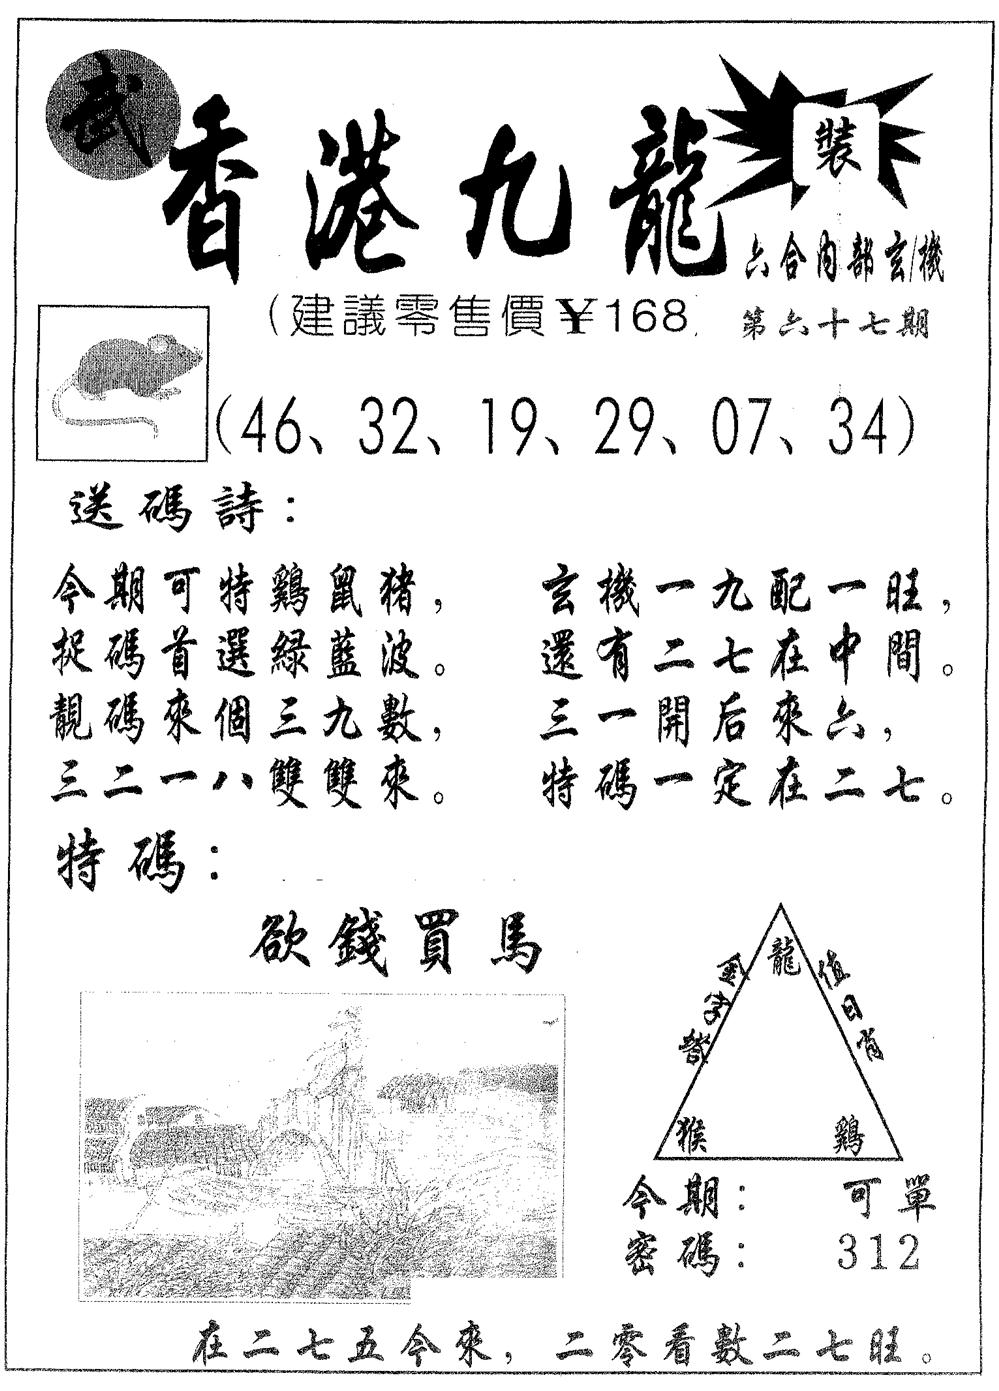 武
香港九龍
裝
六合内部玄機
(建議零售價¥168
第六十七期
(46、32、19、29、07、34)
送碼詩：
今期可特鷄鼠猪，
捉碼首選緑藍波。
靚碼來個三九數，
三二一八雙雙來。
玄機一九配一旺，
還有二七在中間。
三一開后來六，
特碼一定在二七。
特碼：
欲錢買馬
龍
值日肖
猴
鷄
今期：可單
密碼：312
在二七五今來，二零看數二七旺。